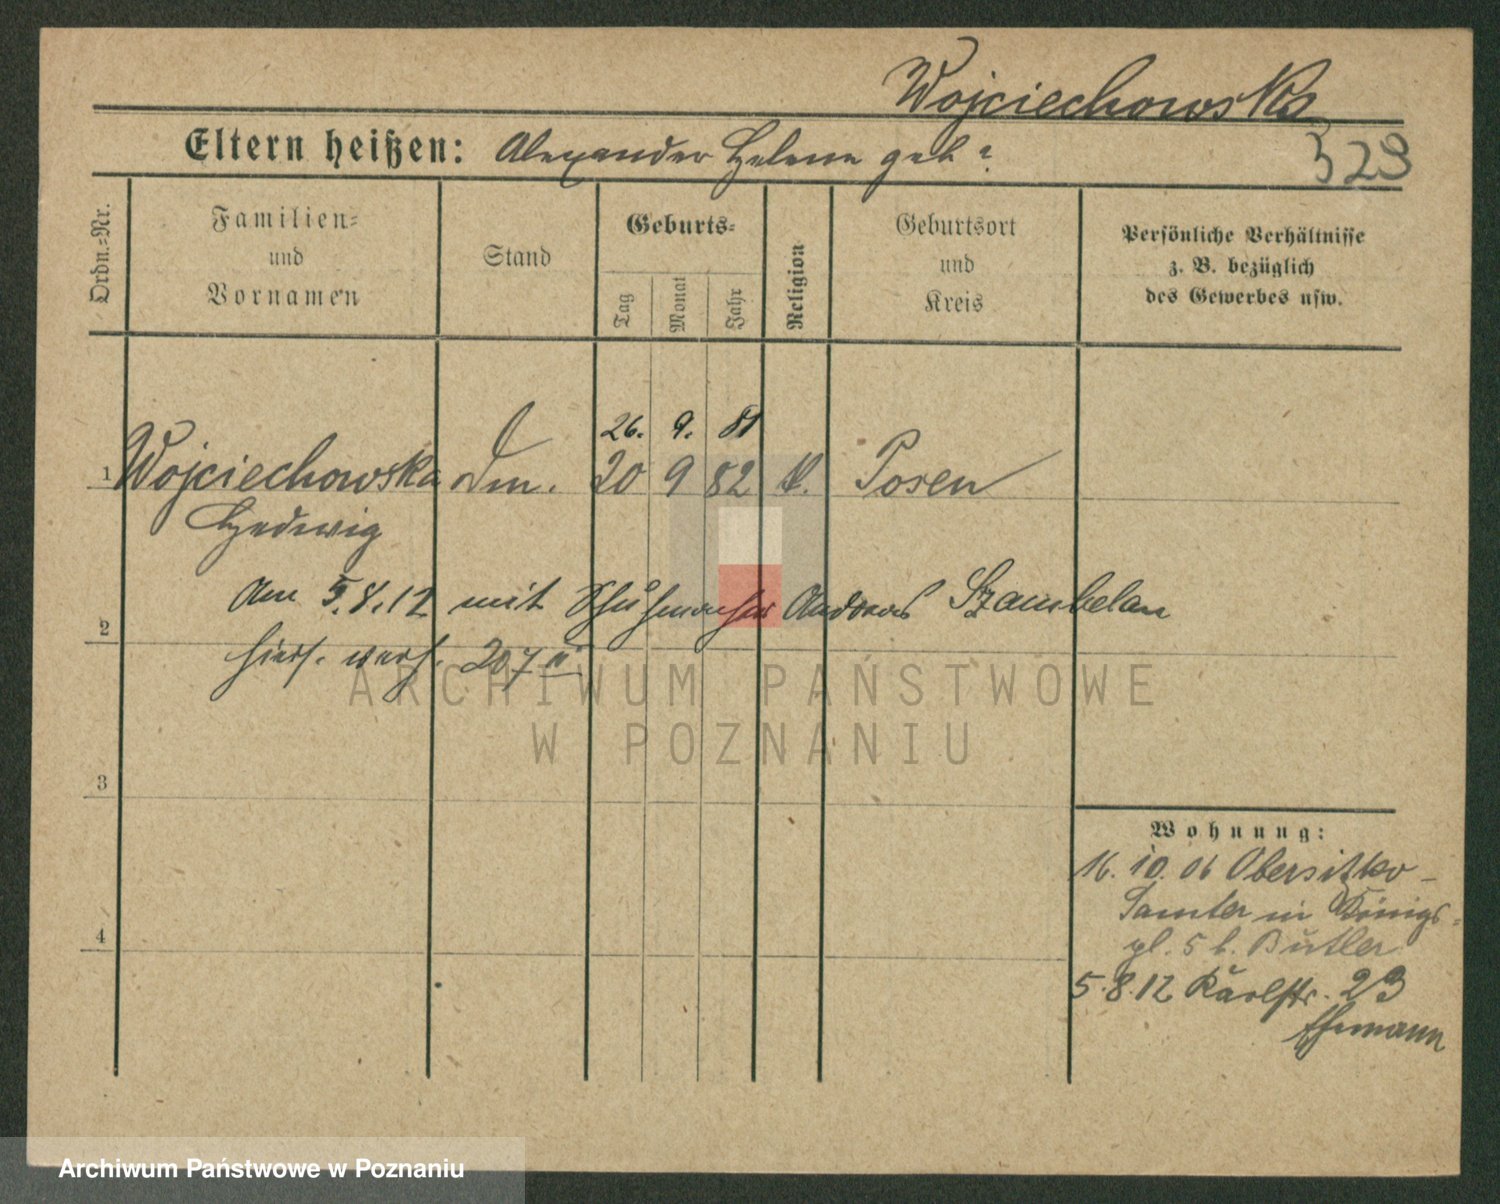 Wojciechowska
Eltern heißen: Alexander Helene geb ?
329
Ordn.=Nr.
Familien=
und
Vornamen
Stand
Geburts=
Tag
Monat
Jahr
Religion
Geburtsort
und
Kreis
Persönliche Verhältnisse
z. B. bezüglich
des Gewerbes usw.
26. 9. 81
1 Wojciechowska Dm. 20 9 82 k. Posen
Hedwig
Am 5.8.12 mit Schuhmacher Andreas Szambelan
2
hies. verh. 207
ARCHIWUM PAŃSTWOWE
W POZNANIU
3
4
Wohnung:
16. 10. 06 Obersitzko -
Samter in Königs-
pl. 5 b. Butler
5.8.12 Karlstr. 23
Ehemann
Archiwum Państwowe w Poznaniu